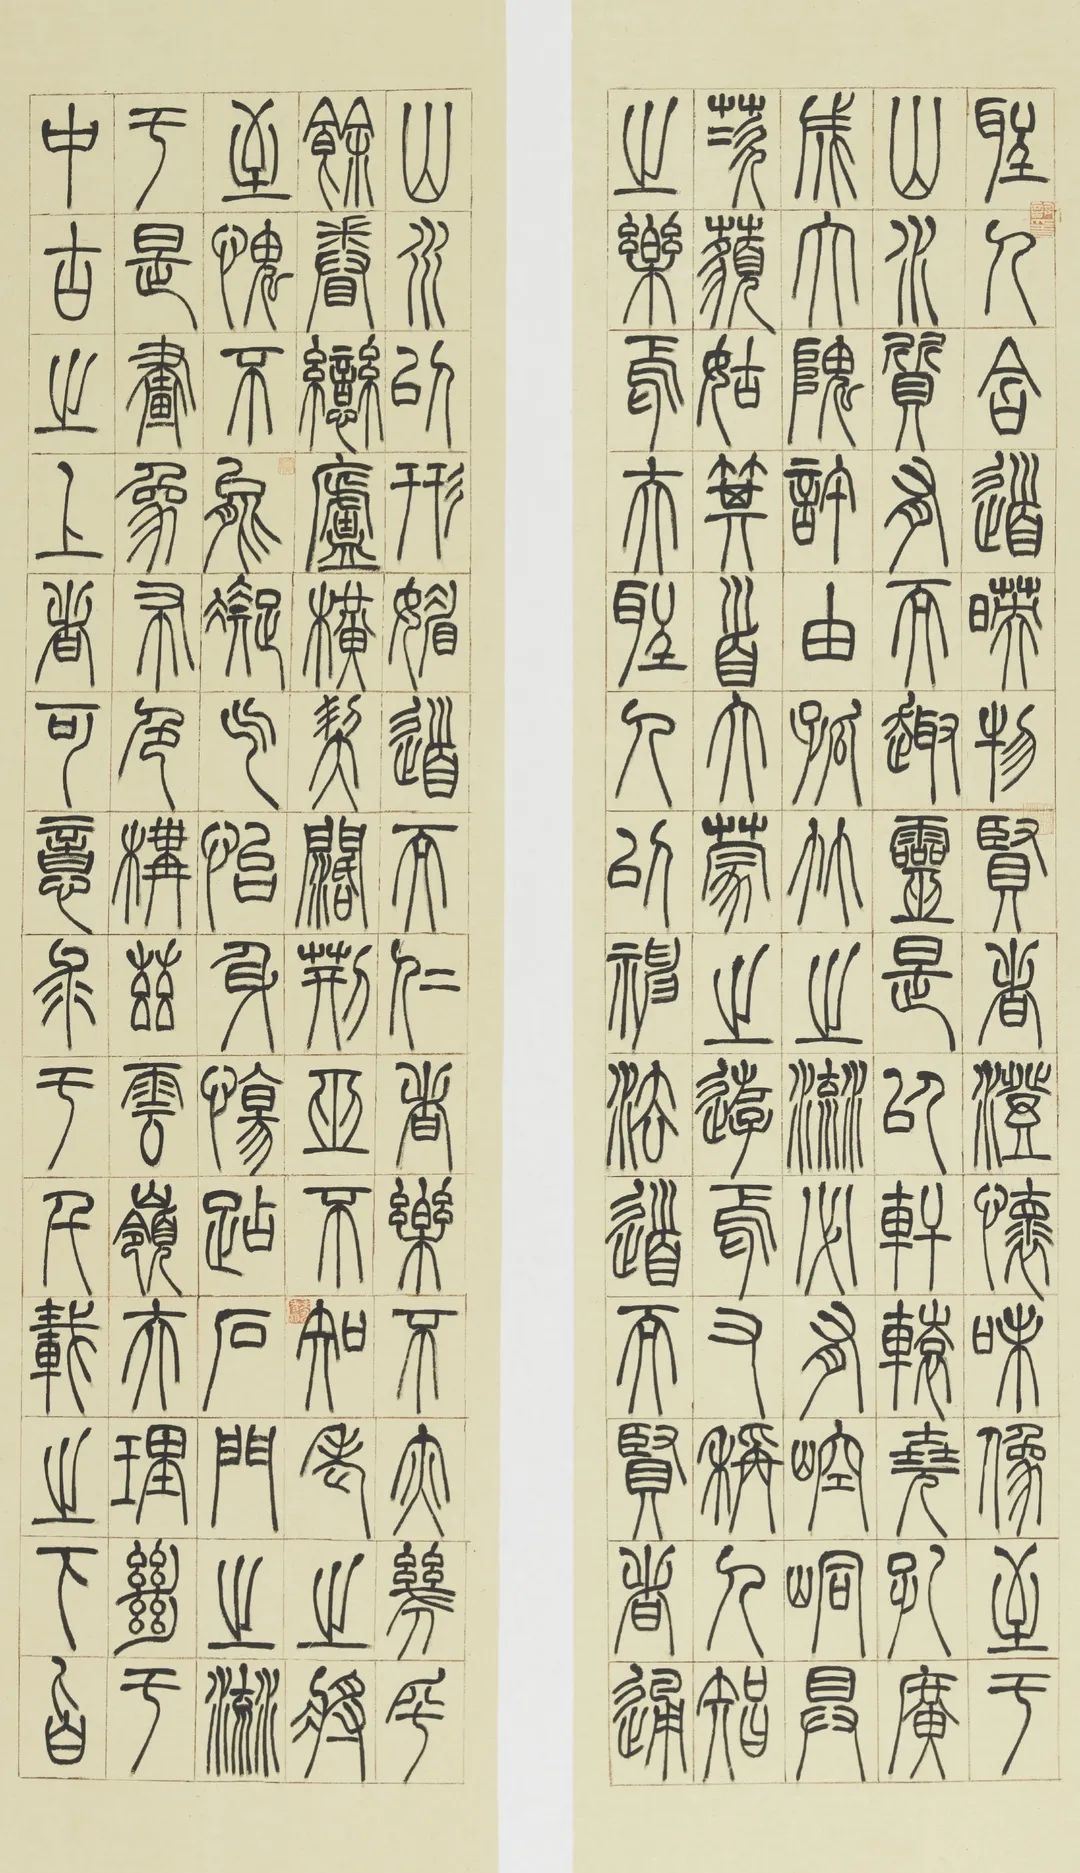 聖人含道暎物賢者澄懷味像至于
山水質有而趣靈是以軒轅堯孔廣
成大隗許由孤竹之流必有崆峒具
茨藐姑箕首大蒙之遊焉又稱人智
之樂焉夫聖人以神法道而賢者通
山水以形媚道而仁者樂不亦幾乎
餘眷戀廬橫契闊荊亞不知老之將
至愧不能凝气怡身惕跕石門之流
于是畫象布色構茲雲嶺夫理絕于
中古之上者可意求于千載之下旨